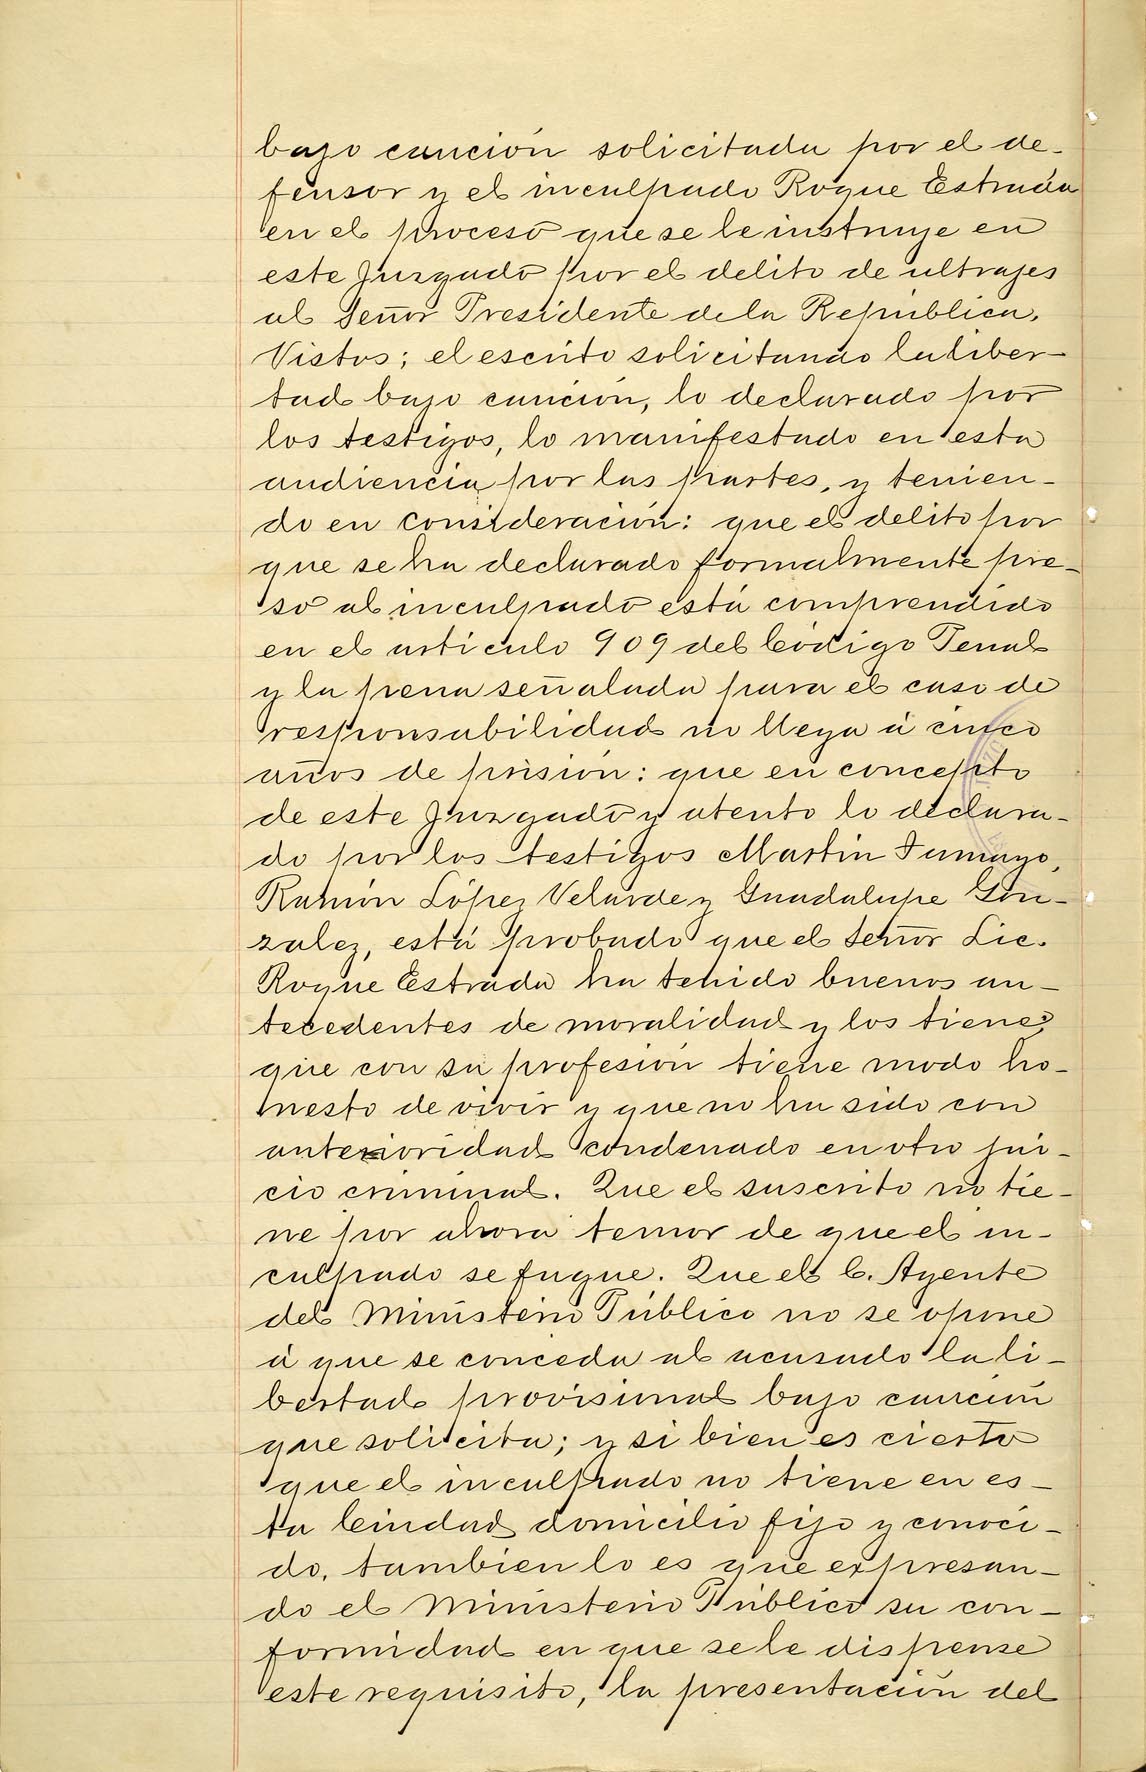 bajo caución solicitada por el de-
fensor y el inculpado Roque Estrada
en el proceso que se le instruye en
este Juzgado por el delito de ultrajes
al Señor Presidente de la República.
Vistos; el escrito solicitando la liber-
tad bajo caución, lo declarado por
los testigos, lo manifestado en esta
audiencia por las partes, y tenien-
do en consideración: que el delito por
que se ha declarado formalmente pre-
so al inculpado está comprendido
en el artículo 909 del Código Penal
y la pena señalada para el caso de
responsabilidad no llega á cinco
años de prisión: que en concepto
de este Juzgado y atento lo declara-
do por los testigos Martín Tamayo,
Ramón López Velarde y Guadalupe Gon-
zalez, está probado que el Señor Lic.
Roque Estrada ha tenido buenos an-
tecedentes de moralidad y los tiene;
que con su profesión tiene modo ho-
nesto de vivir y que no ha sido con
anterioridad condenado en otro jui-
cio criminal. Que el suscrito no tie-
ne por ahora temor de que el in-
culpado se fugue. Que el C. Agente
del Ministerio Público no se opone
á que se conceda al acusado la li-
bertad provisional bajo caución
que solicita; y si bien es cierto
que el inculpado no tiene en es-
ta Ciudad domicilio fijo y conoci-
do, tambien lo es que expresan-
do el Ministerio Público su con-
formidad en que se le dispense
este requisito, la presentación del